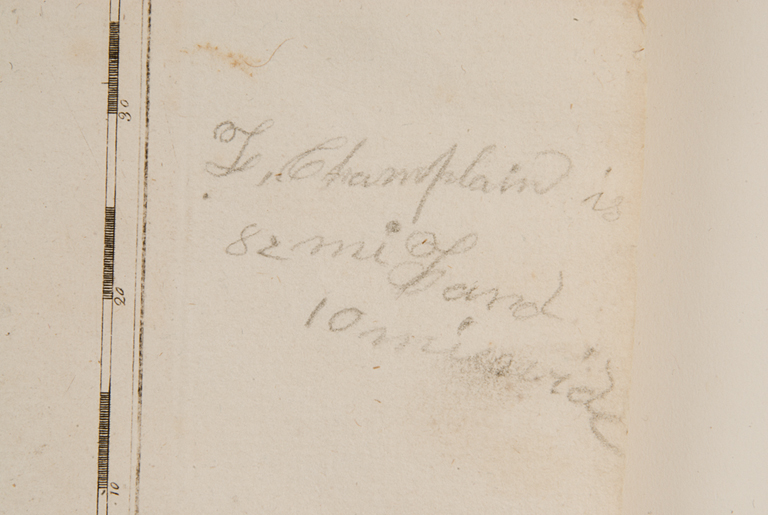 30
L, Champlain is
82 mi L and
20
10 mi wide
10